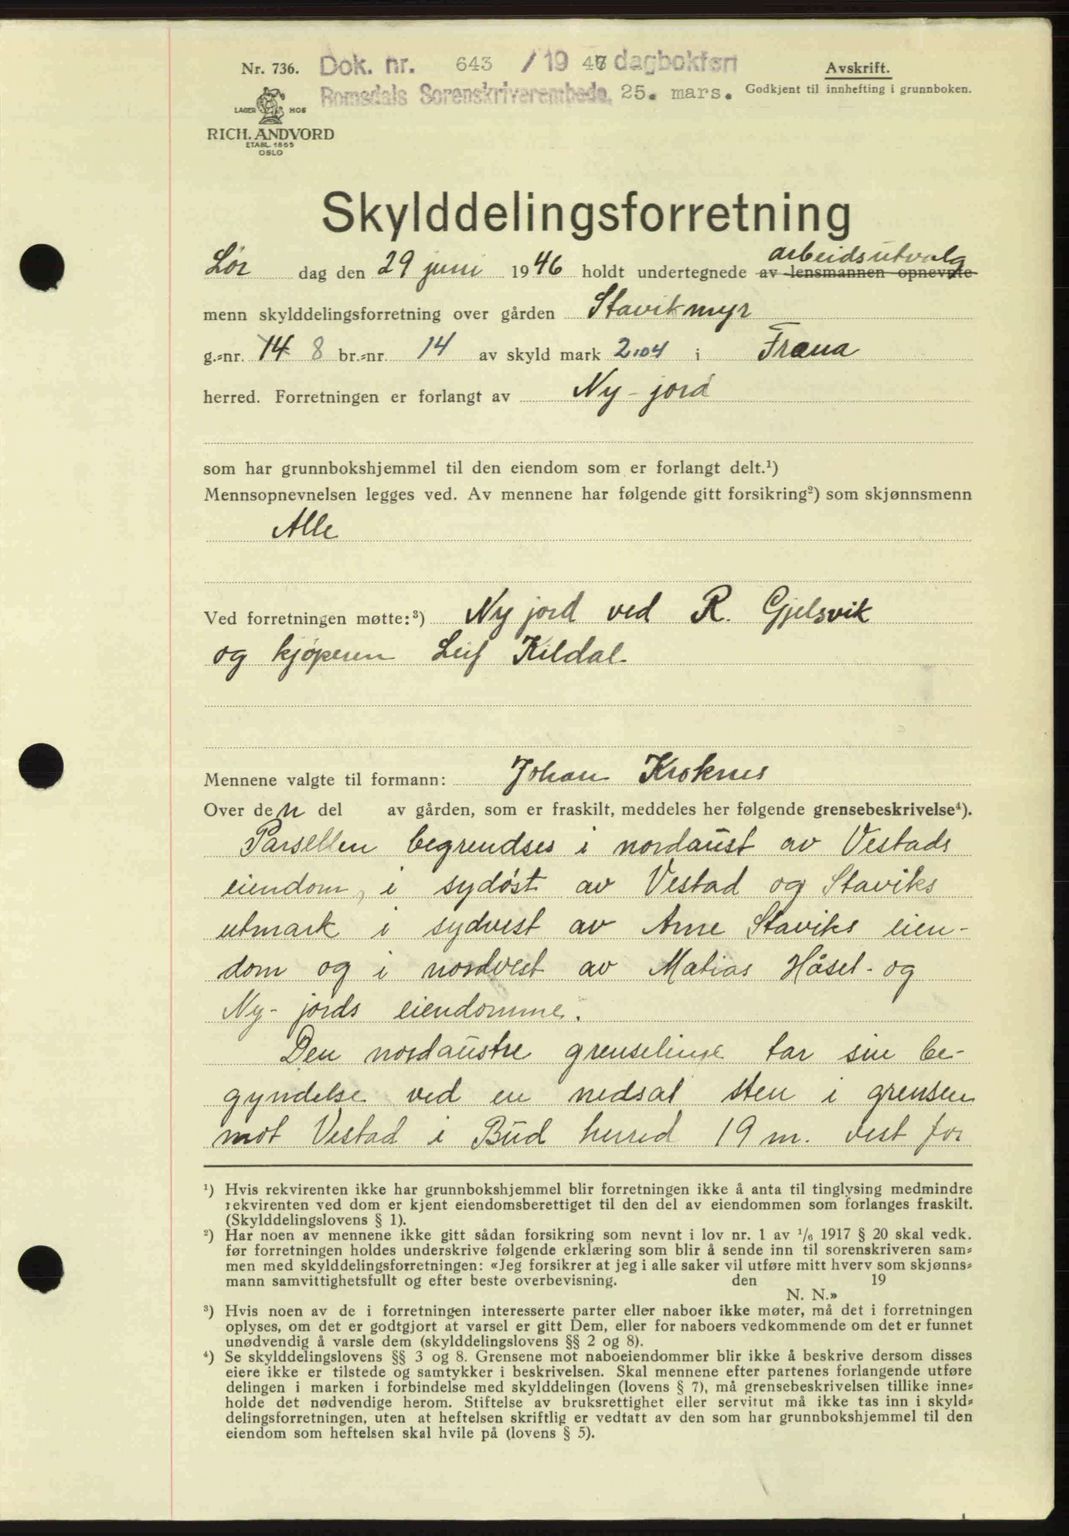 Nr. 736. Dok. nr. 643 / 19 47 dagbokført Avskrift.
Romsdals Sorenskriverembede, 25. mars. Godkjent til innhefting i grunnboken.
LAGER HOS
RICH. ANDVORD
ETABL. 1865
OSLO
Skylddelingsforretning
arbeidsutvalg
Lør dag den 29 juni 1946 holdt undertegnede av lensmannen opnevnte
menn skylddelingsforretning over gården Stavikmyr
g.-nr. 14 8 br.-nr. 14 av skyld mark 2.04 i Fræna
herred. Forretningen er forlangt av Ny-jord
som har grunnbokshjemmel til den eiendom som er forlangt delt.¹)
Mennsopnevnelsen legges ved. Av mennene har følgende gitt forsikring²) som skjønnsmenn
Alle
Ved forretningen møtte:³) Ny jord ved R. Gjelsvik
og kjøperen Leif Kildal.
Mennene valgte til formann: Johan Kroknes
Over den del av gården, som er fraskilt, meddeles her følgende grensebeskrivelse⁴).
Parsellen begrendses i nordaust av Vestads
eiendom, i sydøst av Vestad og Staviks
utmark i sydvest av Arne Staviks eien-
dom og i nordvest av Matias Håsel- og
Ny-jords eiendomme.
Den nordaustre grenselinje tar sin be-
gyndelse ved en nedsat sten i grensen
mot Vestad i Bud herred 19 m. vest for
¹) Hvis rekvirenten ikke har grunnbokshjemmel blir forretningen ikke å anta til tinglysing medmindre
rekvirenten ved dom er kjent eiendomsberettiget til den del av eiendommen som forlanges fraskilt.
(Skylddelingslovens § 1).
²) Har noen av mennene ikke gitt sådan forsikring som nevnt i lov nr. 1 av ¹/₆ 1917 § 20 skal vedk.
før forretningen holdes underskrive følgende erklæring som blir å sende inn til sorenskriveren sam-
men med skylddelingsforretningen: «Jeg forsikrer at jeg i alle saker vil utføre mitt hverv som skjønns-
mann samvittighetsfullt og efter beste overbevisning. den 19
N. N.»
³) Hvis noen av de i forretningen interesserte parter eller naboer ikke møter, må det i forretningen
oplyses, om det er godtgjort at varsel er gitt Dem, eller for naboers vedkommende om det er funnet
unødvendig å varsle dem (skylddelingslovens §§ 2 og 8).
⁴) Se skylddelingslovens §§ 3 og 8. Grensene mot naboeiendommer blir ikke å beskrive dersom disses
eiere ikke er tilstede og samtykker i beskrivelsen. Skal mennene efter partenes forlangende utføre
delingen i marken i forbindelse med skylddelingen (lovens § 7), må grensebeskrivelsen tillike inne-
holde det nødvendige herom. Stiftelse av bruksrettighet eller servitut må ikke tas inn i skyld-
delingsforretningen, uten at heftelsen skriftlig er vedtatt av den som har grunnbokshjemmel til den
eiendom som heftelsen skal hvile på (lovens § 5).